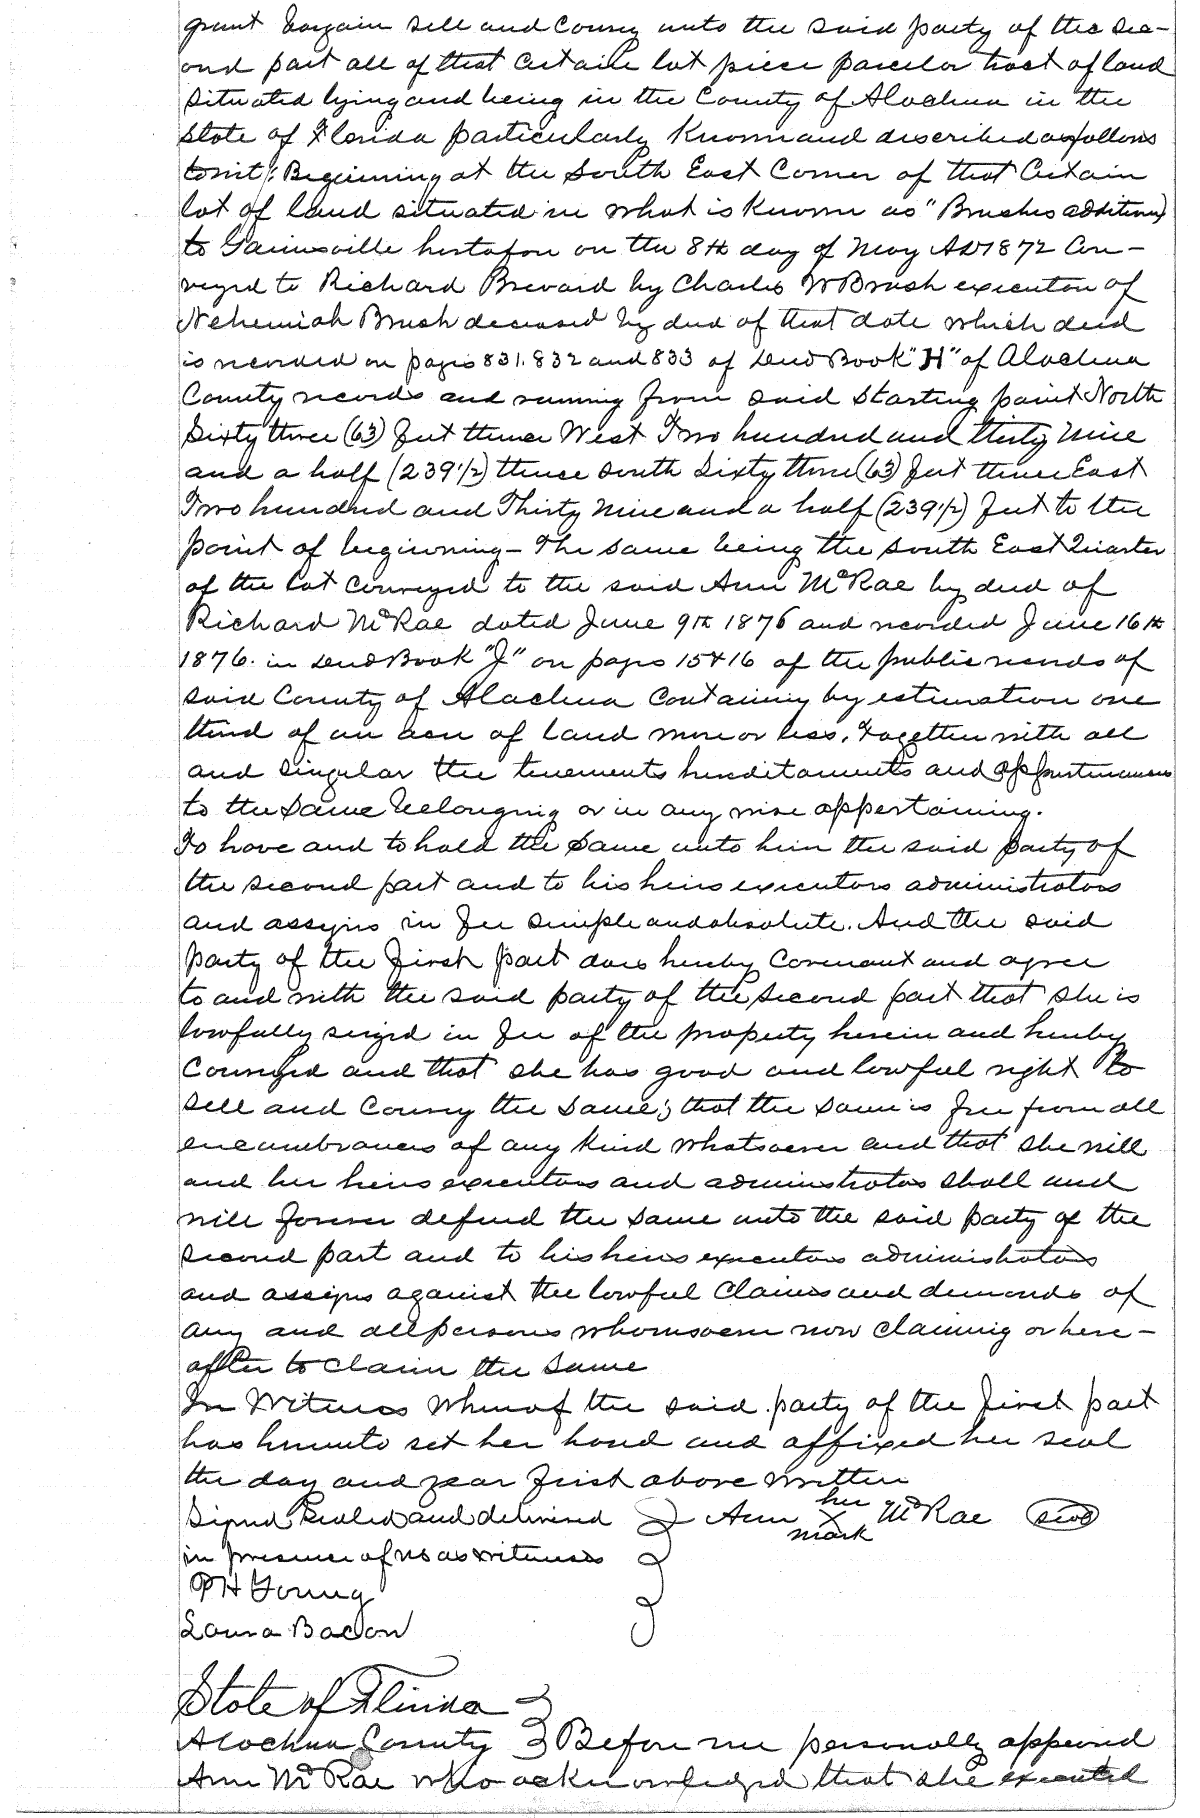 grant bargain sell and convey unto the said party of the sec-
ond part all of that certain lot piece parcel or tract of land
situated lying and being in the County of Alachua in the
State of Florida particularly Known and described as follows
towit: Beginning at the South East Corner of that Certain
lot of land situated in what is Known as "Brushes addition"
to Gainesville heretofore on the 8th day of May AD 1872 Con-
veyed to Richard Brevard by Charles W Brush executor of
Nehemiah Brush deceased by deed of that date which deed
is recorded on pages 831.832 and 833 of Deed Book "H" of Alachua
County records and running from said Starting point North
Sixty three (63) feet thence West Two hundred and thirty Nine
and a half (239 1/2) thence South Sixty three (63) feet thence East
Two hundred and Thirty Nine and a half (239 1/2) feet to the
point of beginning - The same being the South East Quarter
of the lot Conveyed to the said Ann McRae by deed of
Richard McRae dated June 9th 1876 and recorded June 16th
1876. in Deed Book "J" on pages 15 & 16 of the public records of
said County of Alachua Containing by estimation one
third of an acre of land more or less. Together with all
and singular the tenements hereditaments and appurtenances
to the Same belonging or in any wise appertaining.
To have and to hold the Same unto him the said party of
the second part and to his heirs executors administrators
and assigns in fee simple and absolute. And the said
party of the first part does hereby Covenant and agree
to and with the said party of the Second part that she is
lawfully seized in fee of the property herein and hereby
Conveyed and that she has good and lawful right to
sell and Convey the Same; that the Same is free from all
encumbrances of any Kind whatsoever and that she will
and her heirs executors and administrators shall and
will forever defend the same unto the said party of the
second part and to his heirs executors administrators
and assigns against the lawful Claims and demands of
any and all persons whomsoever now claiming or here-
after to claim the same
In Witness Whereof the said party of the first part
has hereunto set her hand and affixed her seal
the day and year first above written
Signed Sealed and delivered Ann her X mark McRae seal
in presence of us as witnesses
P H Young
Laura Bacon
State of Florida
Alachua County Before me personally appeared
Ann McRae who acknowledged that she executed